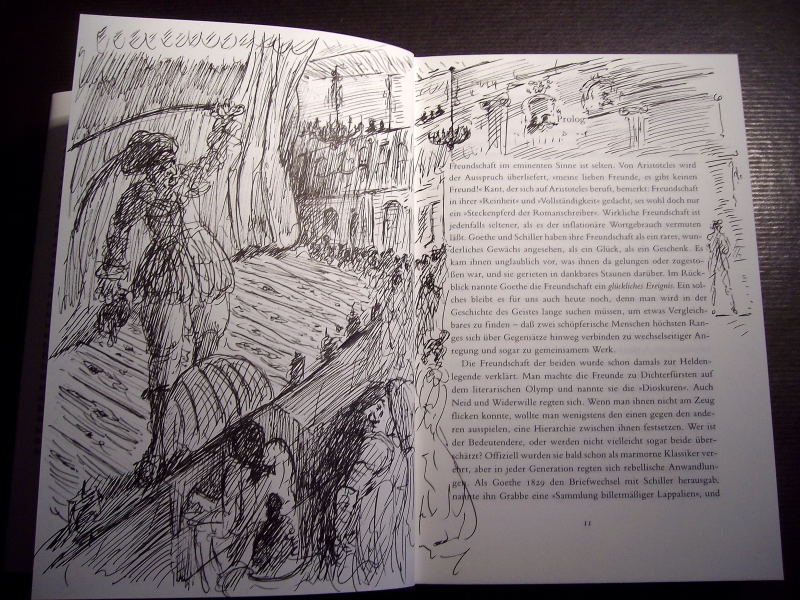 Prolog
Freundschaft im eminenten Sinne ist selten. Von Aristoteles wird
der Ausspruch überliefert, »meine lieben Freunde, es gibt keinen
Freund!« Kant, der sich auf Aristoteles beruft, bemerkt: Freundschaft
in ihrer »Reinheit« und »Vollständigkeit« gedacht, sei wohl doch nur
ein »Steckenpferd der Romanschreiber«. Wirkliche Freundschaft ist
jedenfalls seltener, als es der inflationäre Wortgebrauch vermuten
läßt. Goethe und Schiller haben ihre Freundschaft als ein rares, wun-
derliches Gewächs angesehen, als ein Glück, als ein Geschenk. Es
kam ihnen unglaublich vor, was ihnen da gelungen oder zugesto-
ßen war, und sie gerieten in dankbares Staunen darüber. Im Rück-
blick nannte Goethe die Freundschaft ein glückliches Ereignis. Ein sol-
ches bleibt es für uns auch heute noch, denn man wird in der
Geschichte des Geistes lange suchen müssen, um etwas Vergleich-
bares zu finden – daß zwei schöpferische Menschen höchsten Ran-
ges sich über Gegensätze hinweg verbinden zu wechselseitiger An-
regung und sogar zu gemeinsamem Werk.
Die Freundschaft der beiden wurde schon damals zur Helden-
legende verklärt. Man machte die Freunde zu Dichterfürsten auf
dem literarischen Olymp und nannte sie die »Dioskuren«. Auch
Neid und Widerwille regten sich. Wenn man ihnen nicht am Zeug
flicken konnte, wollte man wenigstens den einen gegen den ande-
ren ausspielen, eine Hierarchie zwischen ihnen festsetzen. Wer ist
der Bedeutendere, oder werden nicht vielleicht sogar beide über-
schätzt? Offiziell wurden sie bald schon als marmorne Klassiker ver-
ehrt, aber in jeder Generation regten sich rebellische Anwandlun-
gen. Als Goethe 1829 den Briefwechsel mit Schiller herausgab,
nannte ihn Grabbe eine »Sammlung billetmäßiger Lappalien«, und
11